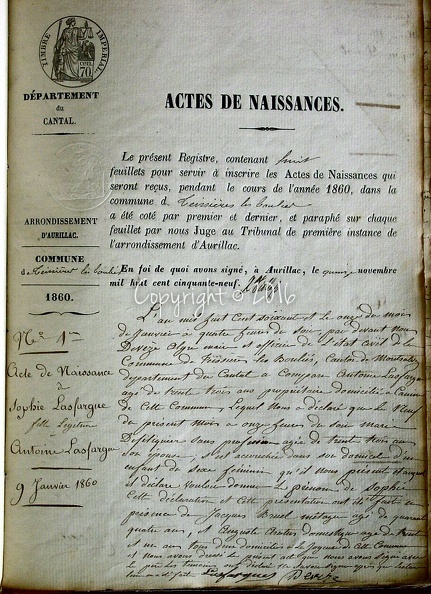 TIMBRE IMPÉRIAL
70
DÉPARTEMENT
du
CANTAL.
ACTES DE NAISSANCES.
Le présent Registre, contenant huit
feuillets pour servir à inscrire les Actes de Naissances qui
seront reçus, pendant le cours de l'année 1860, dans la
commune de Teissières les bouliès
a été coté par premier et dernier, et paraphé sur chaque
feuillet par nous Juge au Tribunal de première instance de
l'arrondissement d'Aurillac.
ARRONDISSEMENT
D'AURILLAC.
COMMUNE
de Teissières les bouliès
1860.
En foi de quoi avons signé, à Aurillac, le quinze novembre
mil huit cent cinquante-neuf.
Copyright © 2016
N° 1er
Acte de Naissance
de
Sophie Lasfargue
fille Légitime
Antoine Lasfargue
9 Janvier 1860
L'an mil huit cent soixante et le onze du mois
de Janvier à quatre heures du soir, par devant nous
Devèze maire et officier de l'état civil de la
Commune de Teissières les Bouliès, Canton de Montsalvy
département du Cantal a Comparu Antoine Lasfargues
agé de trente trois ans propriétaire domicilié à
de Cette Commune, Lequel nous a déclaré que Le Neuf
du présent mois à onze heures du soir marie
sans profession agée de trente trois ans
son épouse, est accouchée dans son domicile d'un
enfant de sexe feminin qu'il nous présente et auquel
il déclare vouloir donner Le prénom de Sophie
Cette déclaration et Cette présentation ont été faite en
présence de Jacques Bruel agé de quarante
quatre ans, et Auguste domestique agé de trente
et un ans tous deux domiciliés à de Cette Commune
et nous avons dressé le présent acte que nous avons signé avec
le père les témoins ont déclaré ne savoir signer après que lecture
leur en a été fait Lasfargues Devèze